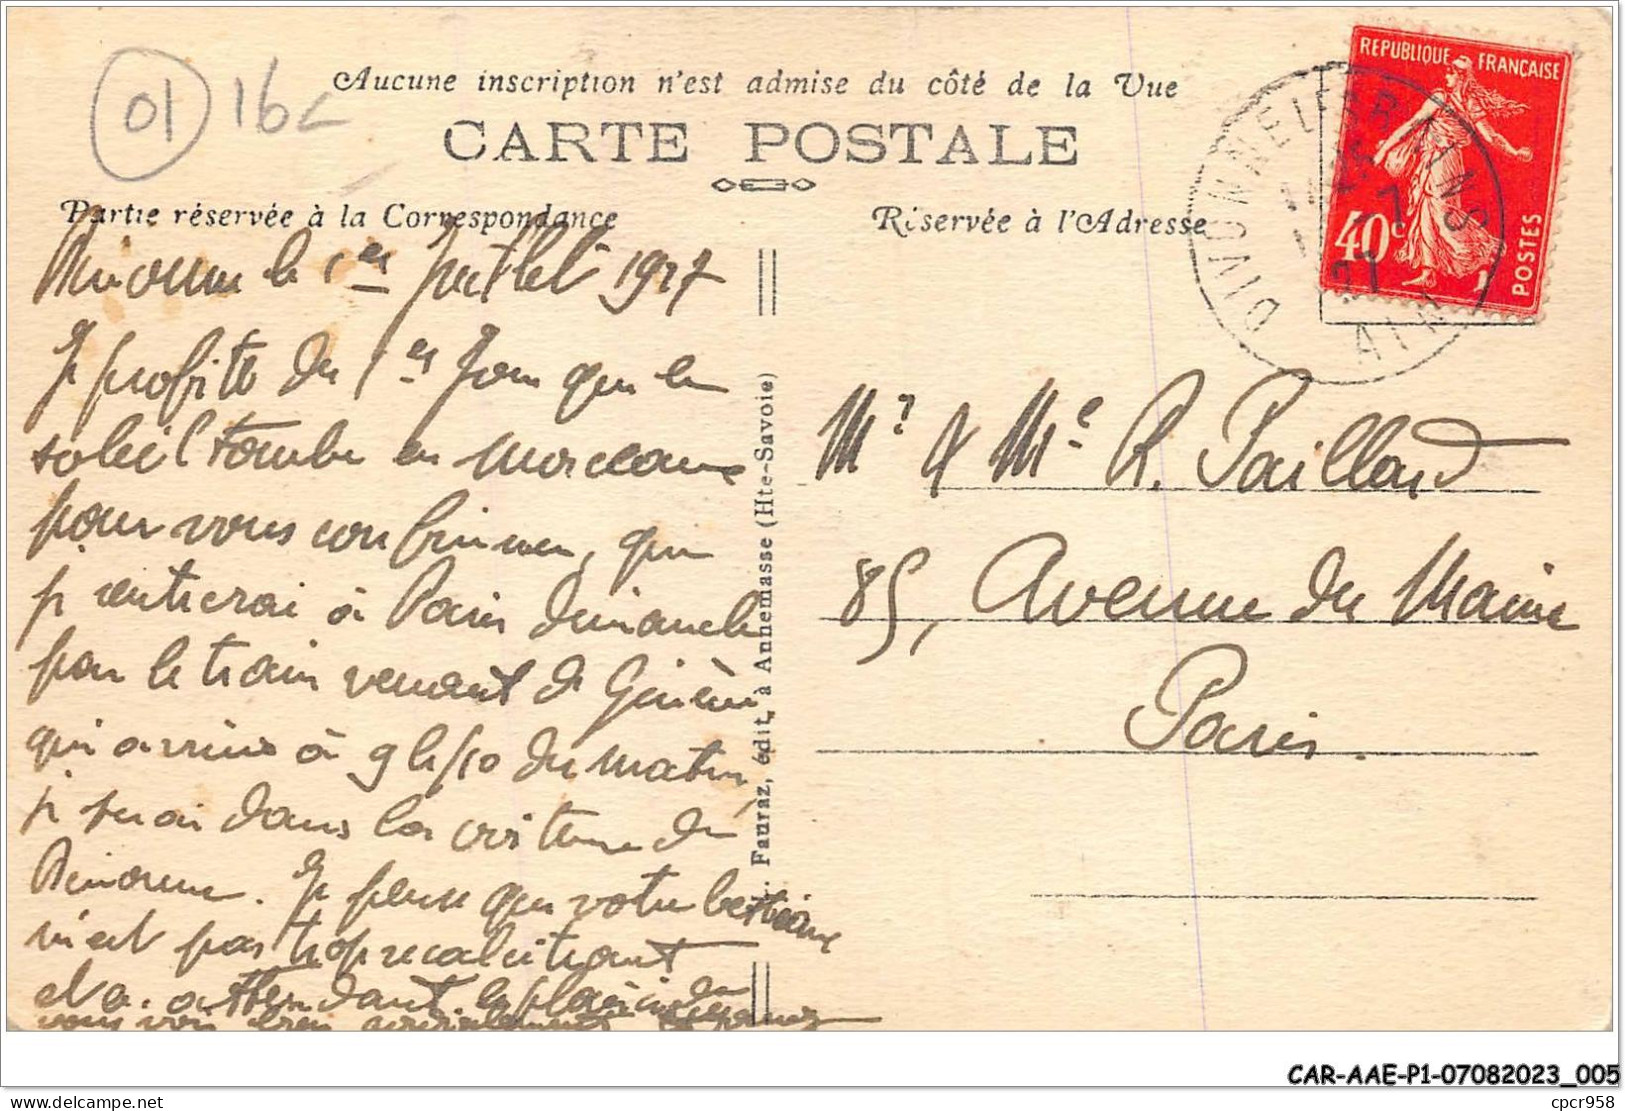 01 16
Aucune inscription n'est admise du côté de la Vue
CARTE POSTALE
Partie réservée à la Correspondance
Réservée à l'Adresse
REPUBLIQUE FRANÇAISE
40c
POSTES
DIVONNE LES BAINS
AIN
le 1er Juillet 1927
Je profite du 1er jour que le
soleil tombe en morceaux
pour vous confirmer, que
je rentrerai à Paris dimanche
par le train venant de Genève
qui arrive à 9h/10 du matin,
je serai dans la voiture de
Je pense que votre
n'est pas trop récalcitrant
et a. attendant le plaisir de
vous voir bien
Fauraz, édit, à Annemasse (Hte-Savoie)
Mr & Me R. Paillard
85, Avenue du Maine
Paris.
CAR-AAE-P1-07082023_005
cpcr958